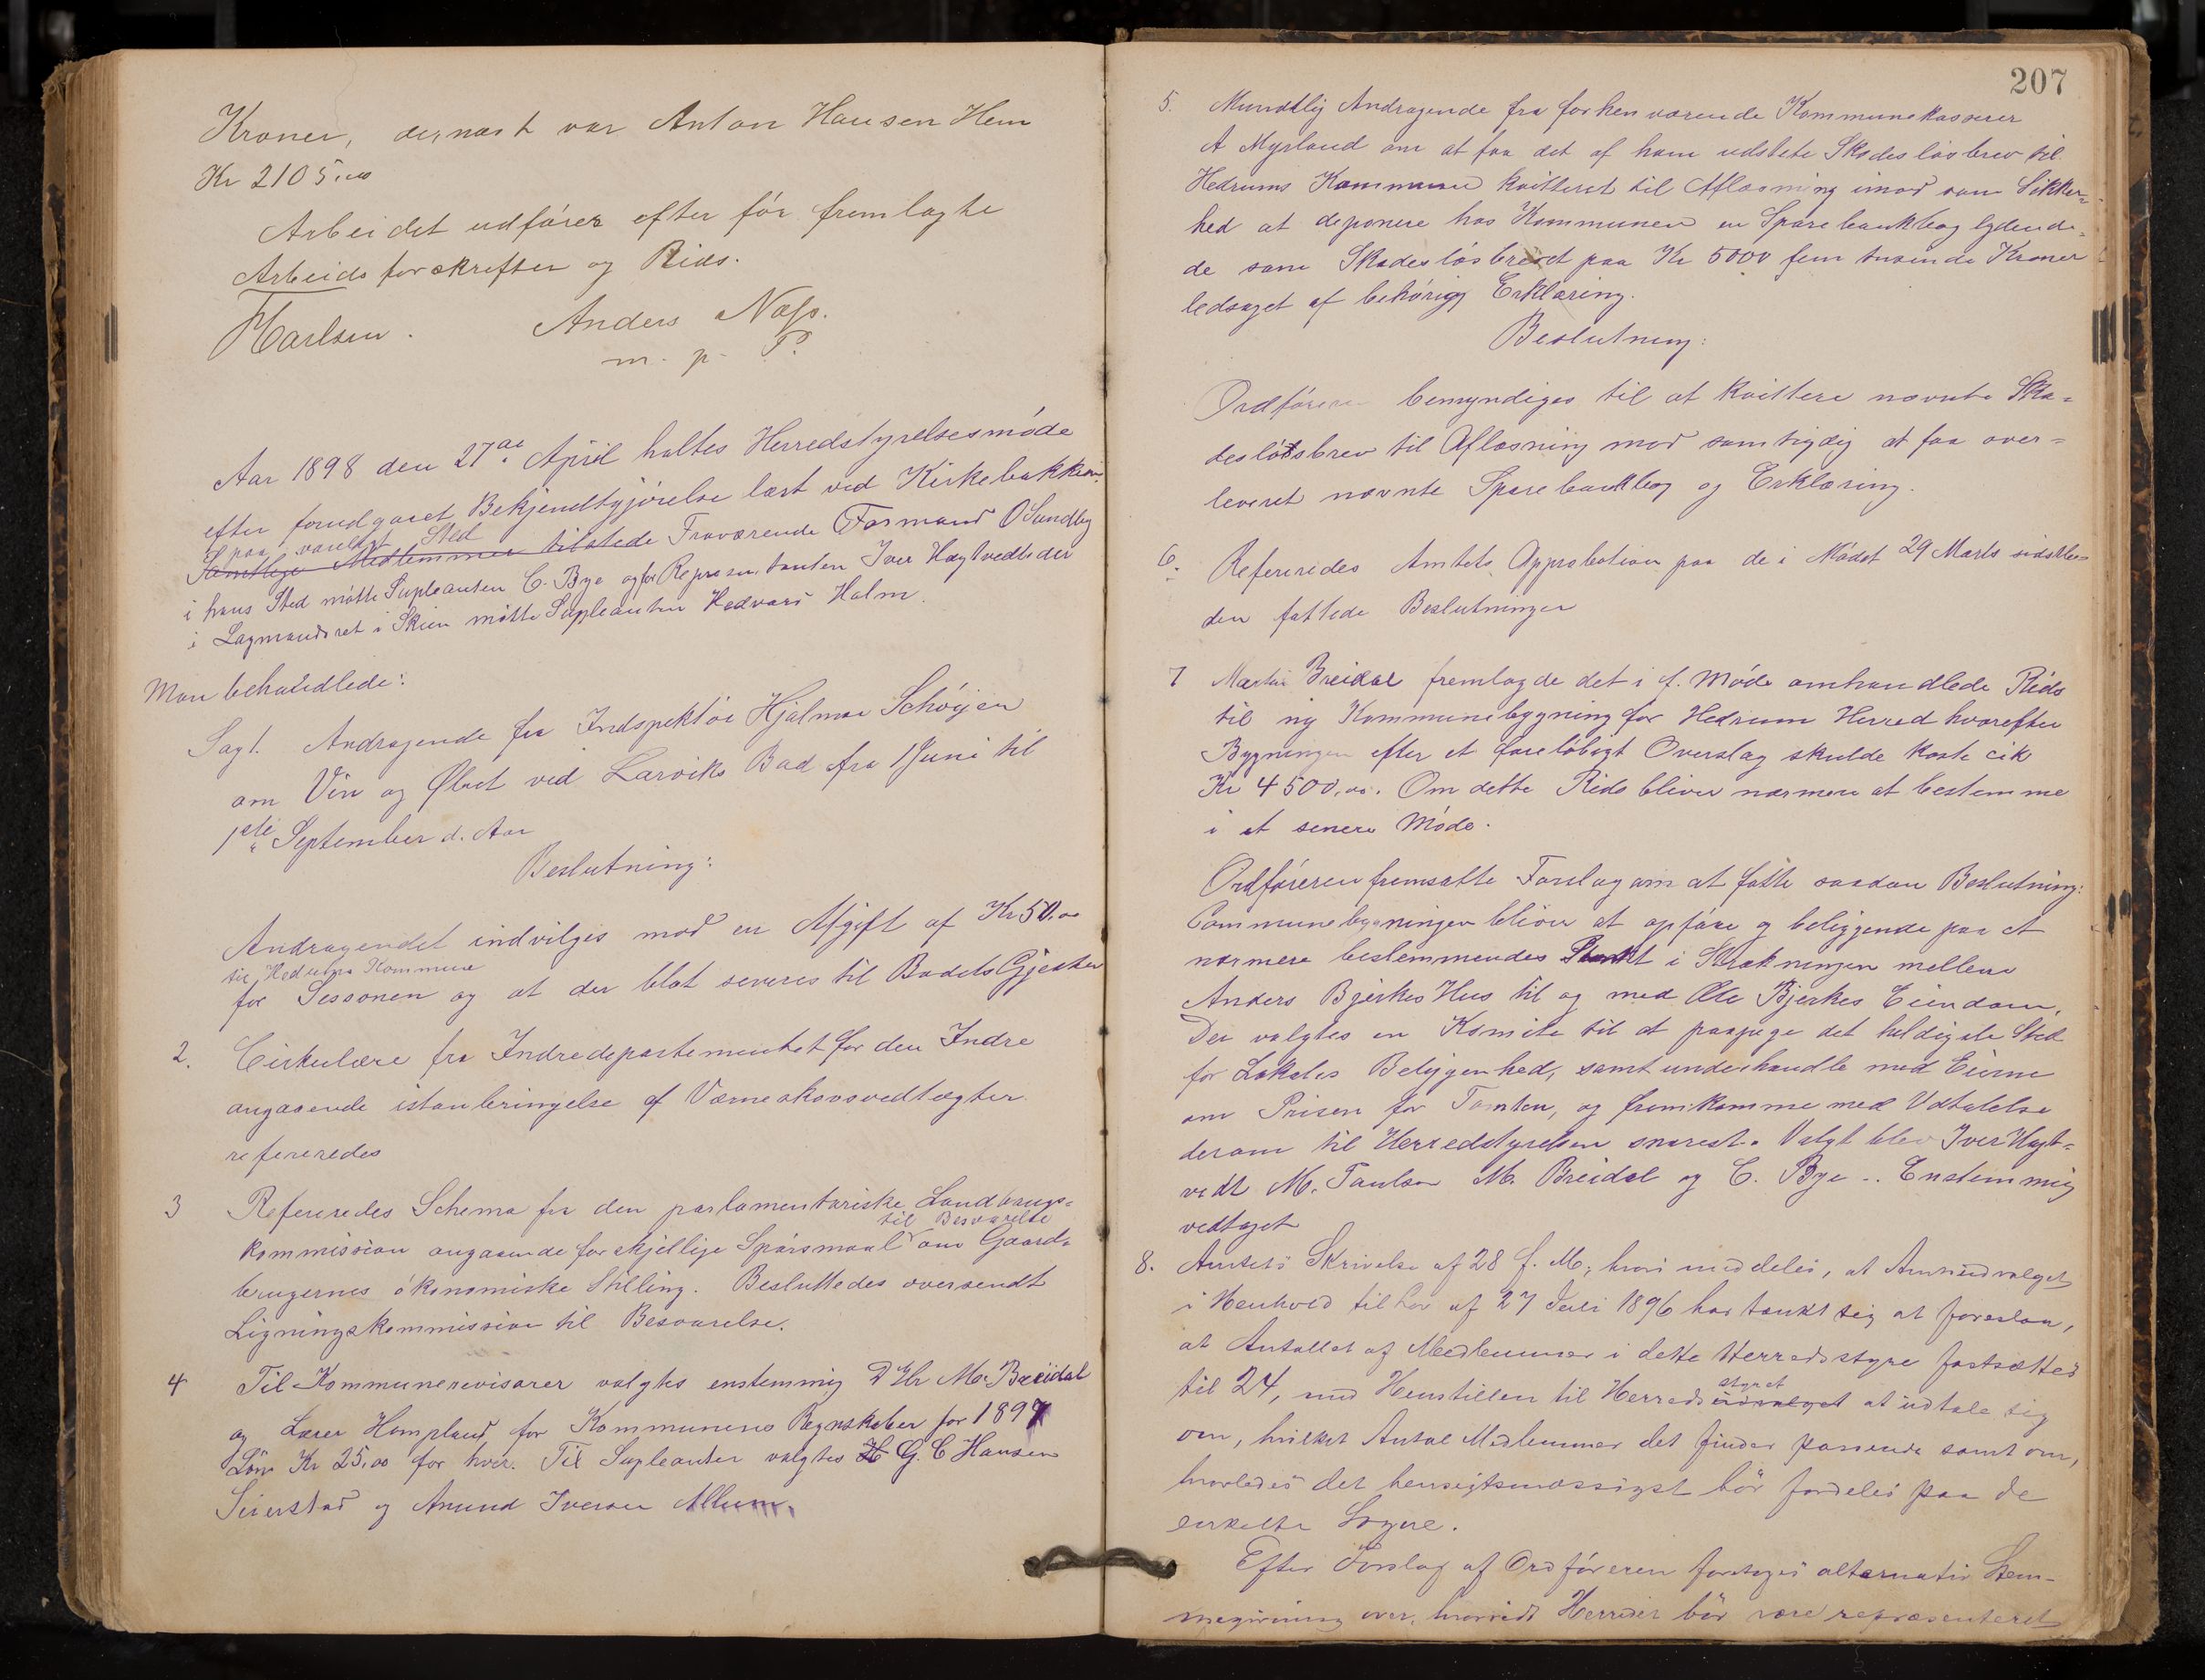 Kroner, dernæst var Anton Hansen Hem
Kr 2105.00
Arbeidet udføres efter før fremlagte
Arbeidsforskrifter og Rids.
HCarlsen. Anders Næss.
m. p. P.
Aar 1898 den 27de April holtes Herredstyrelsesmøde
efter forudgaaet Bekjendtgjørelse læst ved Kirkebakken
paa vanligt Sted
Samtlige Medlemmer tilstede Fraværende Formand O Sundby
i hans Sted mødte Supleanten C. Bye og for Repræsentanten Iver Hagtvedt der
i Lagmandsret i Skien mødte Supleanten Hedvard Holm.
Man behandlede:
Sag 1. Andragende fra Indspektør Hjalmar Schöyen
om Vin og Ølret ved Larviks Bad fra 1 Juni til
1ste September d. Aar
Beslutning:
Andragendet indvilges mod en Afgift af Kr 50.00
til Hedrums Kommune
for Sessonen og at der blot severes til Badets Gjester
2. Cirkulære fra Indredepartementet for den Indre
angaaende istanbringelse af Værneskovsvedtægter
refereredes
3 Refereredes Schema fra den parlamentariske Landbrugs=
til Besvarelse
kommission angaaende forskjellige Spørsmaal om Gaard=
brugernes økonomiske Stilling. Besluttedes oversendt
Ligningskommission til Besvarelse.
4 Til Kommunerevisorer valgtes enstemmig D Hr M. Breidal
og Lærer Hompland for Kommunens Regnskaber for 1897
Løn Kr 25,00 for hver. Til Supleanter valgtes H G. C Hansen
Seierstad og Amund Iversen Allum.
207
5. Mundtlig Andragende fra forhenværende Kommunekasserer
A Myrland om at faa det af ham udstete Skadesløsbrev til
Hedrums Kommune kvitteret til Aflæsning imod som Sikker=
hed at deponere hos Kommunen en Sparebankbog lydende
de som Skadesløsbrevet paa Kr 5000 fem tusende Kroner
ledsaget af behørigg Erklæring.
Beslutning:
Ordføreren bemyndiges til at kvittere nævnte Ska=
desløsbrev til Aflæsning mod samtigdig at faa over=
leveret nævnte Sparebankbog og Erklæring.
6. Refereredes Amtets Approbation paa de i Mødet 29 Marts sidstle=
den fattede Beslutninger
7 Martin Breidal fremlagde det i f. Møde omhandlede Rids
til ny Kommunebygning for Hedrum Herred hvorefter
Bygningen efter et foreløbigt Overslag skulde koste cik
Kr 4500.00. Om dette Rids bliver nærmere at bestemme
i et senere Møde.
Ordføreren fremsatte Forslag om at fatte saadan Beslutning:
Communebygningen bliver at opføre og beliggende paa et
nærmere bestemmendes Punkt i Strækningen mellem
Anders Bjerkes Hus til og med Ole Bjerkes Eiendom.
Der valgtes en Komite til at paapege det heldigste Sted
for Lokalets Beliggenhed, samt underhandle med Eierne
om Prisen for Tomten, og fremkomme med Udtalelse
derom til Herredstyrelsen snarest. Valgt blev Iver Hagt=
vedt M. Paulsen M. Breidal og C. Bye .. Enstemmig
vedtaget
8. Amtets Skrivelse af 28 f. M., hvori meddeles, at Amtsudvalget
i Henhold til Lov af 27 Juli 1896 har tænkt sig at foreslaa,
at Antallet af Medlemmer i dette Herredsstyre fastsættes
til 24, med Henstillen til Herredsudvalget at udtale sig
styret
om, hvilket Antal Medlemmer det finder passende samt om,
hvorledes det hensigtsmæssigst bör fordeles paa de
enkelte Sogne.
Efter Forslag af Ordføreren foretoges alternativ Stem-
megivning over, hvorvidt Herredet bör være repræsenteret